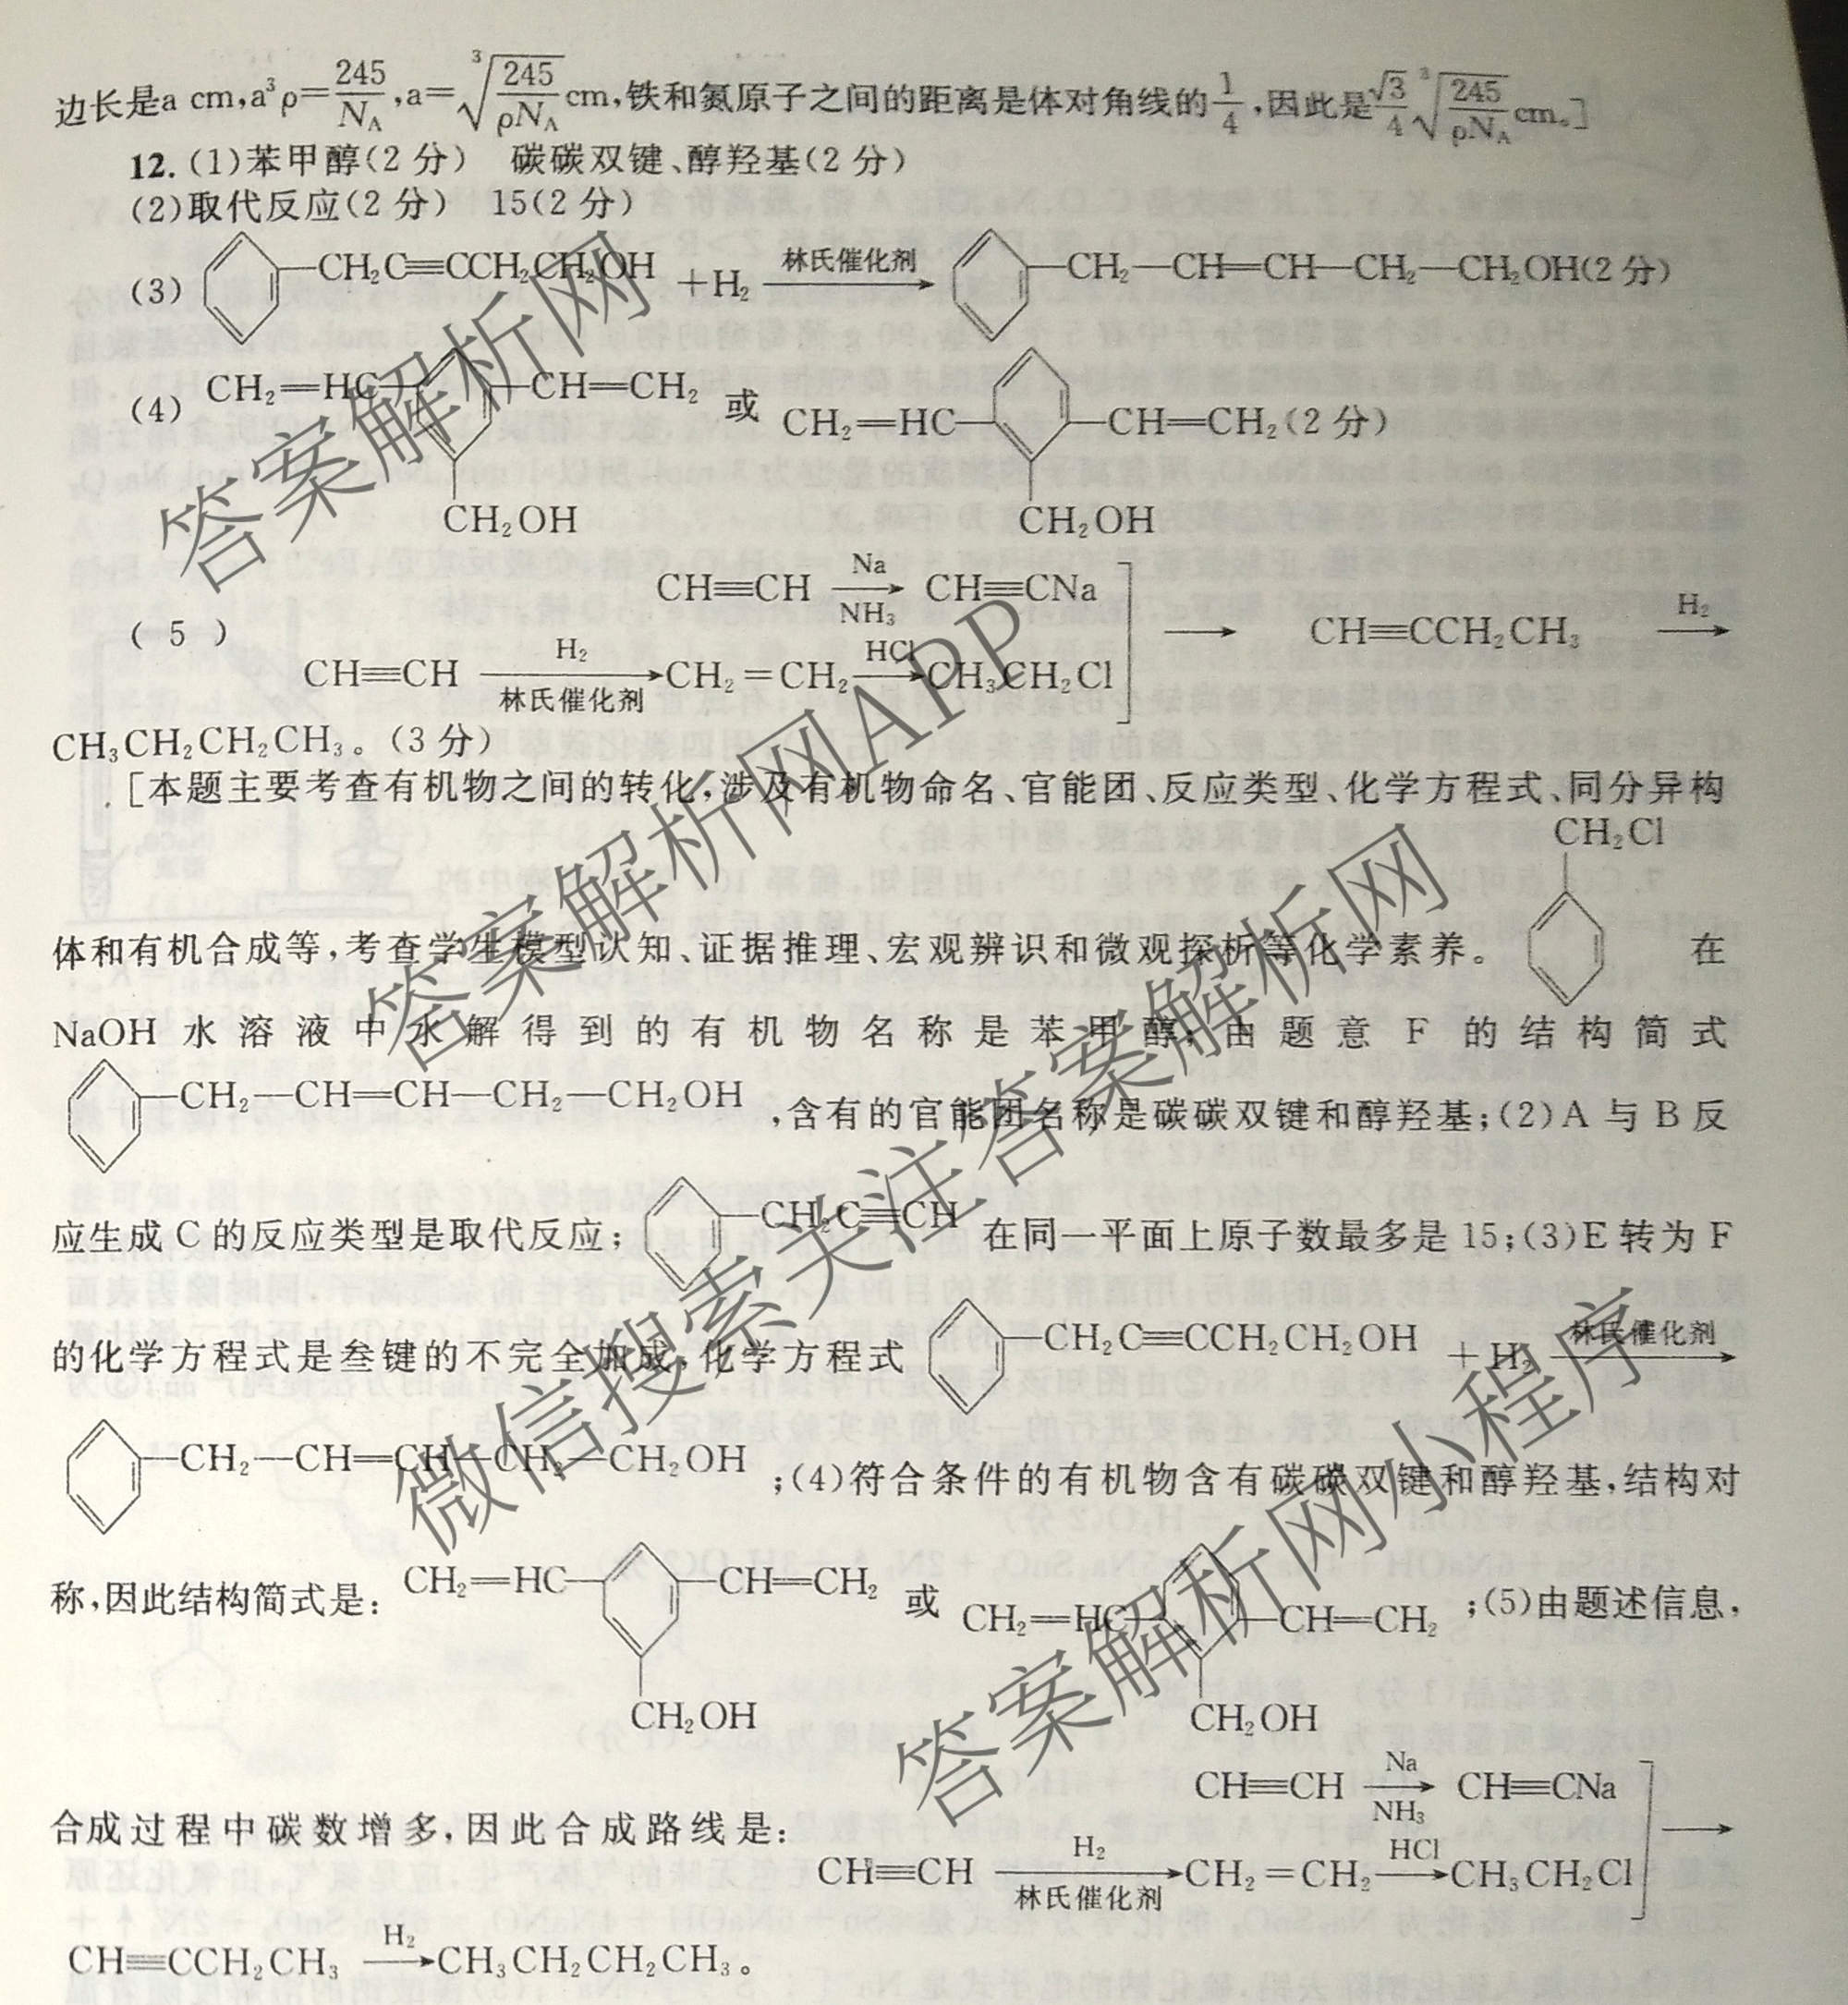 边长是a cm,a³ρ=245/N_A,a=∛(245/ρN_A)cm,铁和氮原子之间的距离是体对角线的1/4,因此是√3/4 ∛(245/ρN_A)cm。]
12.(1)苯甲醇(2分) 碳碳双键、醇羟基(2分)
(2)取代反应(2分) 15(2分)
(3) —CH₂C≡CCH₂CH₂OH +H₂ 林氏催化剂→ —CH₂—CH=CH—CH₂—CH₂OH(2分)
(4) CH₂=HC— —CH=CH₂ 或 CH₂=HC— —CH=CH₂(2分)
CH₂OH CH₂OH
CH≡CH Na/NH₃→ CH≡CNa
(5) CH≡CH H₂/林氏催化剂→CH₂=CH₂ HCl→CH₃CH₂Cl ] → CH≡CCH₂CH₃ H₂→
CH₃CH₂CH₂CH₃。(3分)
[本题主要考查有机物之间的转化,涉及有机物命名、官能团、反应类型、化学方程式、同分异构
CH₂Cl
体和有机合成等,考查学生模型认知、证据推理、宏观辨识和微观探析等化学素养。 在
NaOH水溶液中水解得到的有机物名称是苯甲醇;由题意F的结构简式
—CH₂—CH=CH—CH₂—CH₂OH ,含有的官能团名称是碳碳双键和醇羟基;(2)A与B反
应生成C的反应类型是取代反应; —CH₂C≡CH 在同一平面上原子数最多是15;(3)E转为F
的化学方程式是叁键的不完全加成,化学方程式 —CH₂C≡CCH₂CH₂OH +H₂ 林氏催化剂→
—CH₂—CH=CH—CH₂—CH₂OH ;(4)符合条件的有机物含有碳碳双键和醇羟基,结构对
称,因此结构简式是: CH₂=HC— —CH=CH₂ 或 CH₂=HC— —CH=CH₂ ;(5)由题述信息,
CH₂OH CH₂OH
CH≡CH Na/NH₃→ CH≡CNa
合成过程中碳数增多,因此合成路线是: CH≡CH H₂/林氏催化剂→CH₂=CH₂ HCl→CH₃CH₂Cl ] →
CH≡CCH₂CH₃ H₂→CH₃CH₂CH₂CH₃。
答案解析网
答案解析网APP
微信搜索关注答案解析网
答案解析网小程序